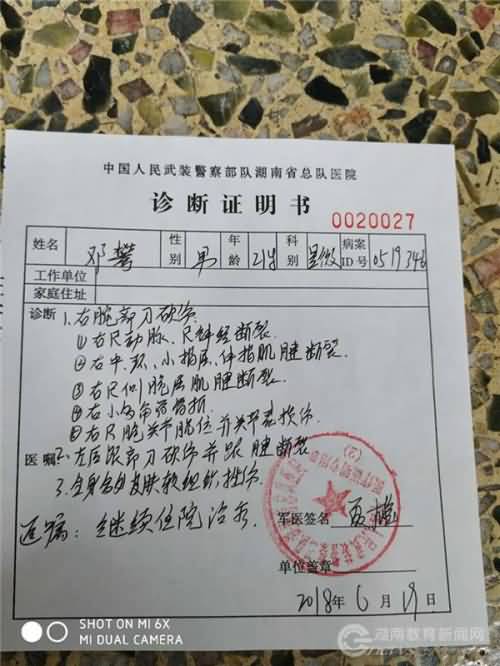 中国人民武装警察部队湖南省总队医院
诊断证明书
0020027
姓名 邓 性别 男 年龄 21岁 科别 显微 病案ID号 0519346
工作单位
家庭住址
诊断 1.右腕部刀砍伤
①右尺动脉、尺神经断裂.
②右中、环、小指屈、伸指肌腱断裂.
③右尺侧腕屈肌腱断裂.
④右小多角骨骨折
⑤右尺腕关节脱位并关节囊损伤
2.左足跟部刀砍伤并跟腱断裂
3.全身多处皮肤软组织挫伤
医嘱:
医嘱: 继续住院治疗.
军医签名
单位盖章
2018年6月19日
SHOT ON MI 6X
MI DUAL CAMERA
湖南教育新闻网